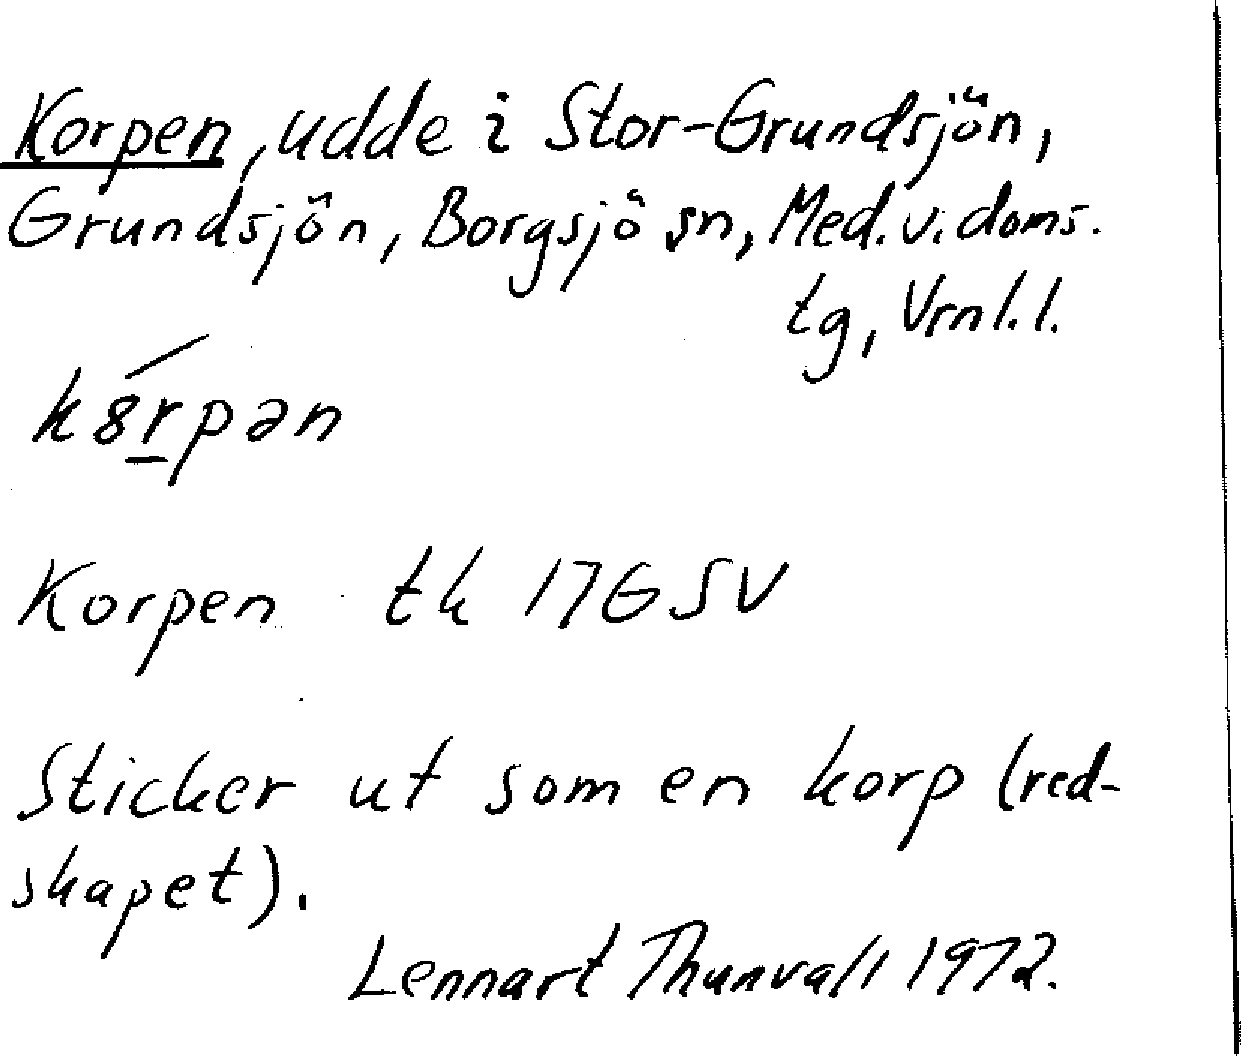 Korpen, udde i Stor-Grundsjön,
Grundsjön, Borgsjö sn, Med. v. doms.
tg, Vrnl. l.
kȣrpən
Korpen tk 17G SV
Sticker ut som en korp (red-
skapet).
Lennart Thunvall 1972.